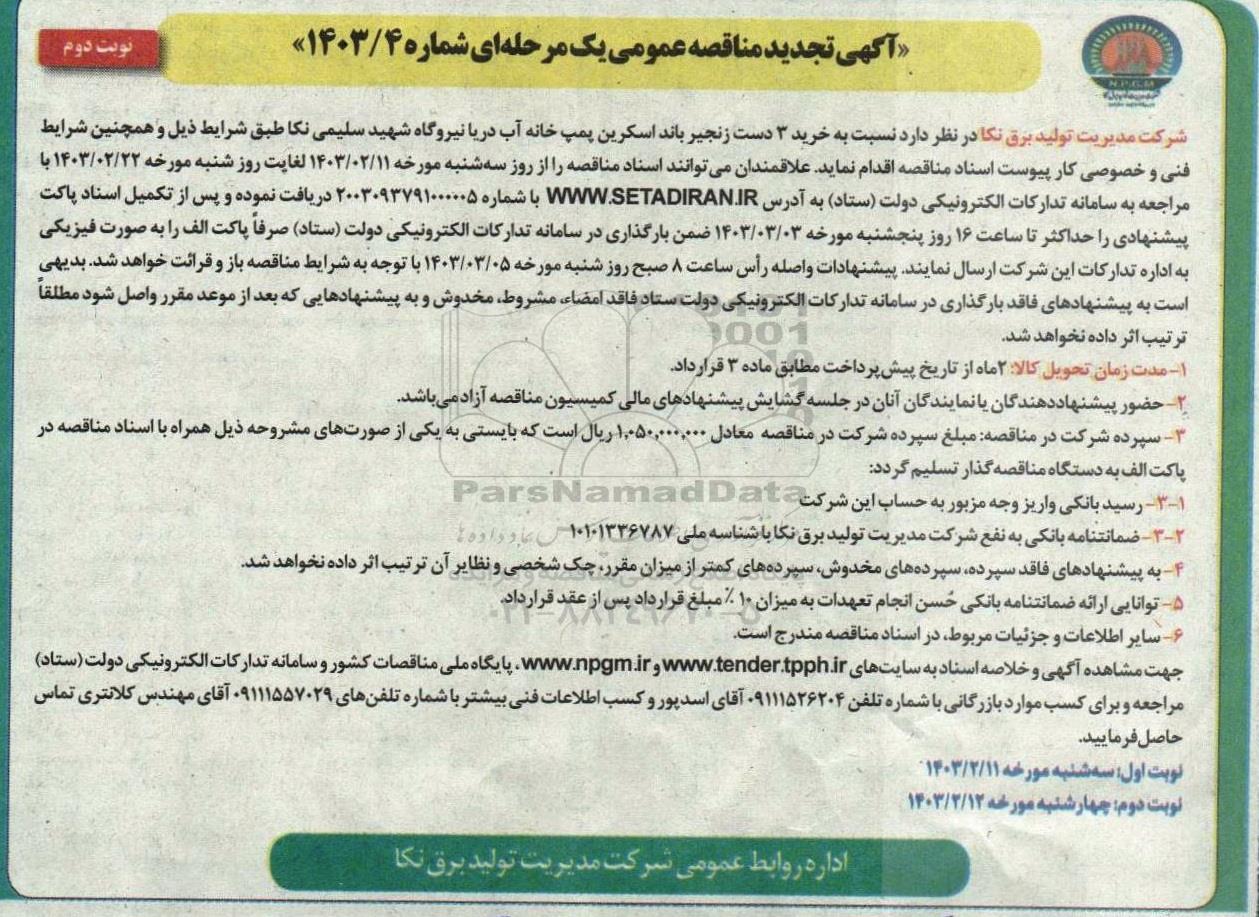 «آگهی تجدید مناقصه عمومی یک مرحله‌ای شماره ۱۴۰۳/۴»
نوبت دوم
N.P.G.M
شرکت مدیریت تولید برق نکا در نظر دارد نسبت به خرید ۳ دست زنجیر باند اسکرین پمپ خانه آب دریا نیروگاه شهید سلیمی نکا طبق شرایط ذیل و همچنین شرایط
فنی و خصوصی کار پیوست اسناد مناقصه اقدام نماید. علاقمندان می‌توانند اسناد مناقصه را از روز سه‌شنبه مورخه ۱۴۰۳/۰۲/۱۱ لغایت روز شنبه مورخه ۱۴۰۳/۰۲/۲۲ با
مراجعه به سامانه تدارکات الکترونیکی دولت (ستاد) به آدرس WWW.SETADIRAN.IR با شماره ۲۰۰۳۰۹۳۷۹۱۰۰۰۰۰۵ دریافت نموده و پس از تکمیل اسناد پاکت
پیشنهادی را حداکثر تا ساعت ۱۶ روز پنجشنبه مورخه ۱۴۰۳/۰۳/۰۳ ضمن بارگذاری در سامانه تدارکات الکترونیکی دولت (ستاد) صرفاً پاکت الف را به صورت فیزیکی
به اداره تدارکات این شرکت ارسال نمایند. پیشنهادات واصله رأس ساعت ۸ صبح روز شنبه مورخه ۱۴۰۳/۰۳/۰۵ با توجه به شرایط مناقصه باز و قرائت خواهد شد. بدیهی
است به پیشنهادهای فاقد بارگذاری در سامانه تدارکات الکترونیکی دولت ستاد فاقد امضاء، مشروط، مخدوش و به پیشنهادهایی که بعد از موعد مقرر واصل شود مطلقاً
ترتیب اثر داده نخواهد شد.
۱- مدت زمان تحویل کالا: ۲ماه از تاریخ پیش‌پرداخت مطابق ماده ۳ قرارداد.
۲- حضور پیشنهاددهندگان یا نمایندگان آنان در جلسه گشایش پیشنهادهای مالی کمیسیون مناقصه آزاد می‌باشد.
۳- سپرده شرکت در مناقصه: مبلغ سپرده شرکت در مناقصه معادل ۱,۰۵۰,۰۰۰,۰۰۰ ریال است که بایستی به یکی از صورت‌های مشروحه ذیل همراه با اسناد مناقصه در
پاکت الف به دستگاه مناقصه‌گذار تسلیم گردد:
ParsNamadData
۳-۱- رسید بانکی واریز وجه مزبور به حساب این شرکت
۳-۲- ضمانتنامه بانکی به نفع شرکت مدیریت تولید برق نکا با شناسه ملی ۱۰۱۰۱۳۳۶۷۸۷
۴- به پیشنهادهای فاقد سپرده، سپرده‌های مخدوش، سپرده‌های کمتر از میزان مقرر، چک شخصی و نظایر آن ترتیب اثر داده نخواهد شد.
۵- توانایی ارائه ضمانتنامه بانکی حُسن انجام تعهدات به میزان ۱۰٪ مبلغ قرارداد پس از عقد قرارداد.
۶- سایر اطلاعات و جزئیات مربوط، در اسناد مناقصه مندرج است.
جهت مشاهده آگهی و خلاصه اسناد به سایت‌های www.tender.tpph.ir و www.npgm.ir، پایگاه ملی مناقصات کشور و سامانه تدارکات الکترونیکی دولت (ستاد)
مراجعه و برای کسب موارد بازرگانی با شماره تلفن ۰۹۱۱۱۵۲۶۲۰۴ آقای اسدپور و کسب اطلاعات فنی بیشتر با شماره تلفن‌های ۰۹۱۱۱۵۵۷۰۲۹ آقای مهندس کلانتری تماس
حاصل فرمایید.
نوبت اول: سه‌شنبه مورخه ۱۴۰۳/۲/۱۱
نوبت دوم: چهارشنبه مورخه ۱۴۰۳/۲/۱۲
اداره روابط عمومی شرکت مدیریت تولید برق نکا